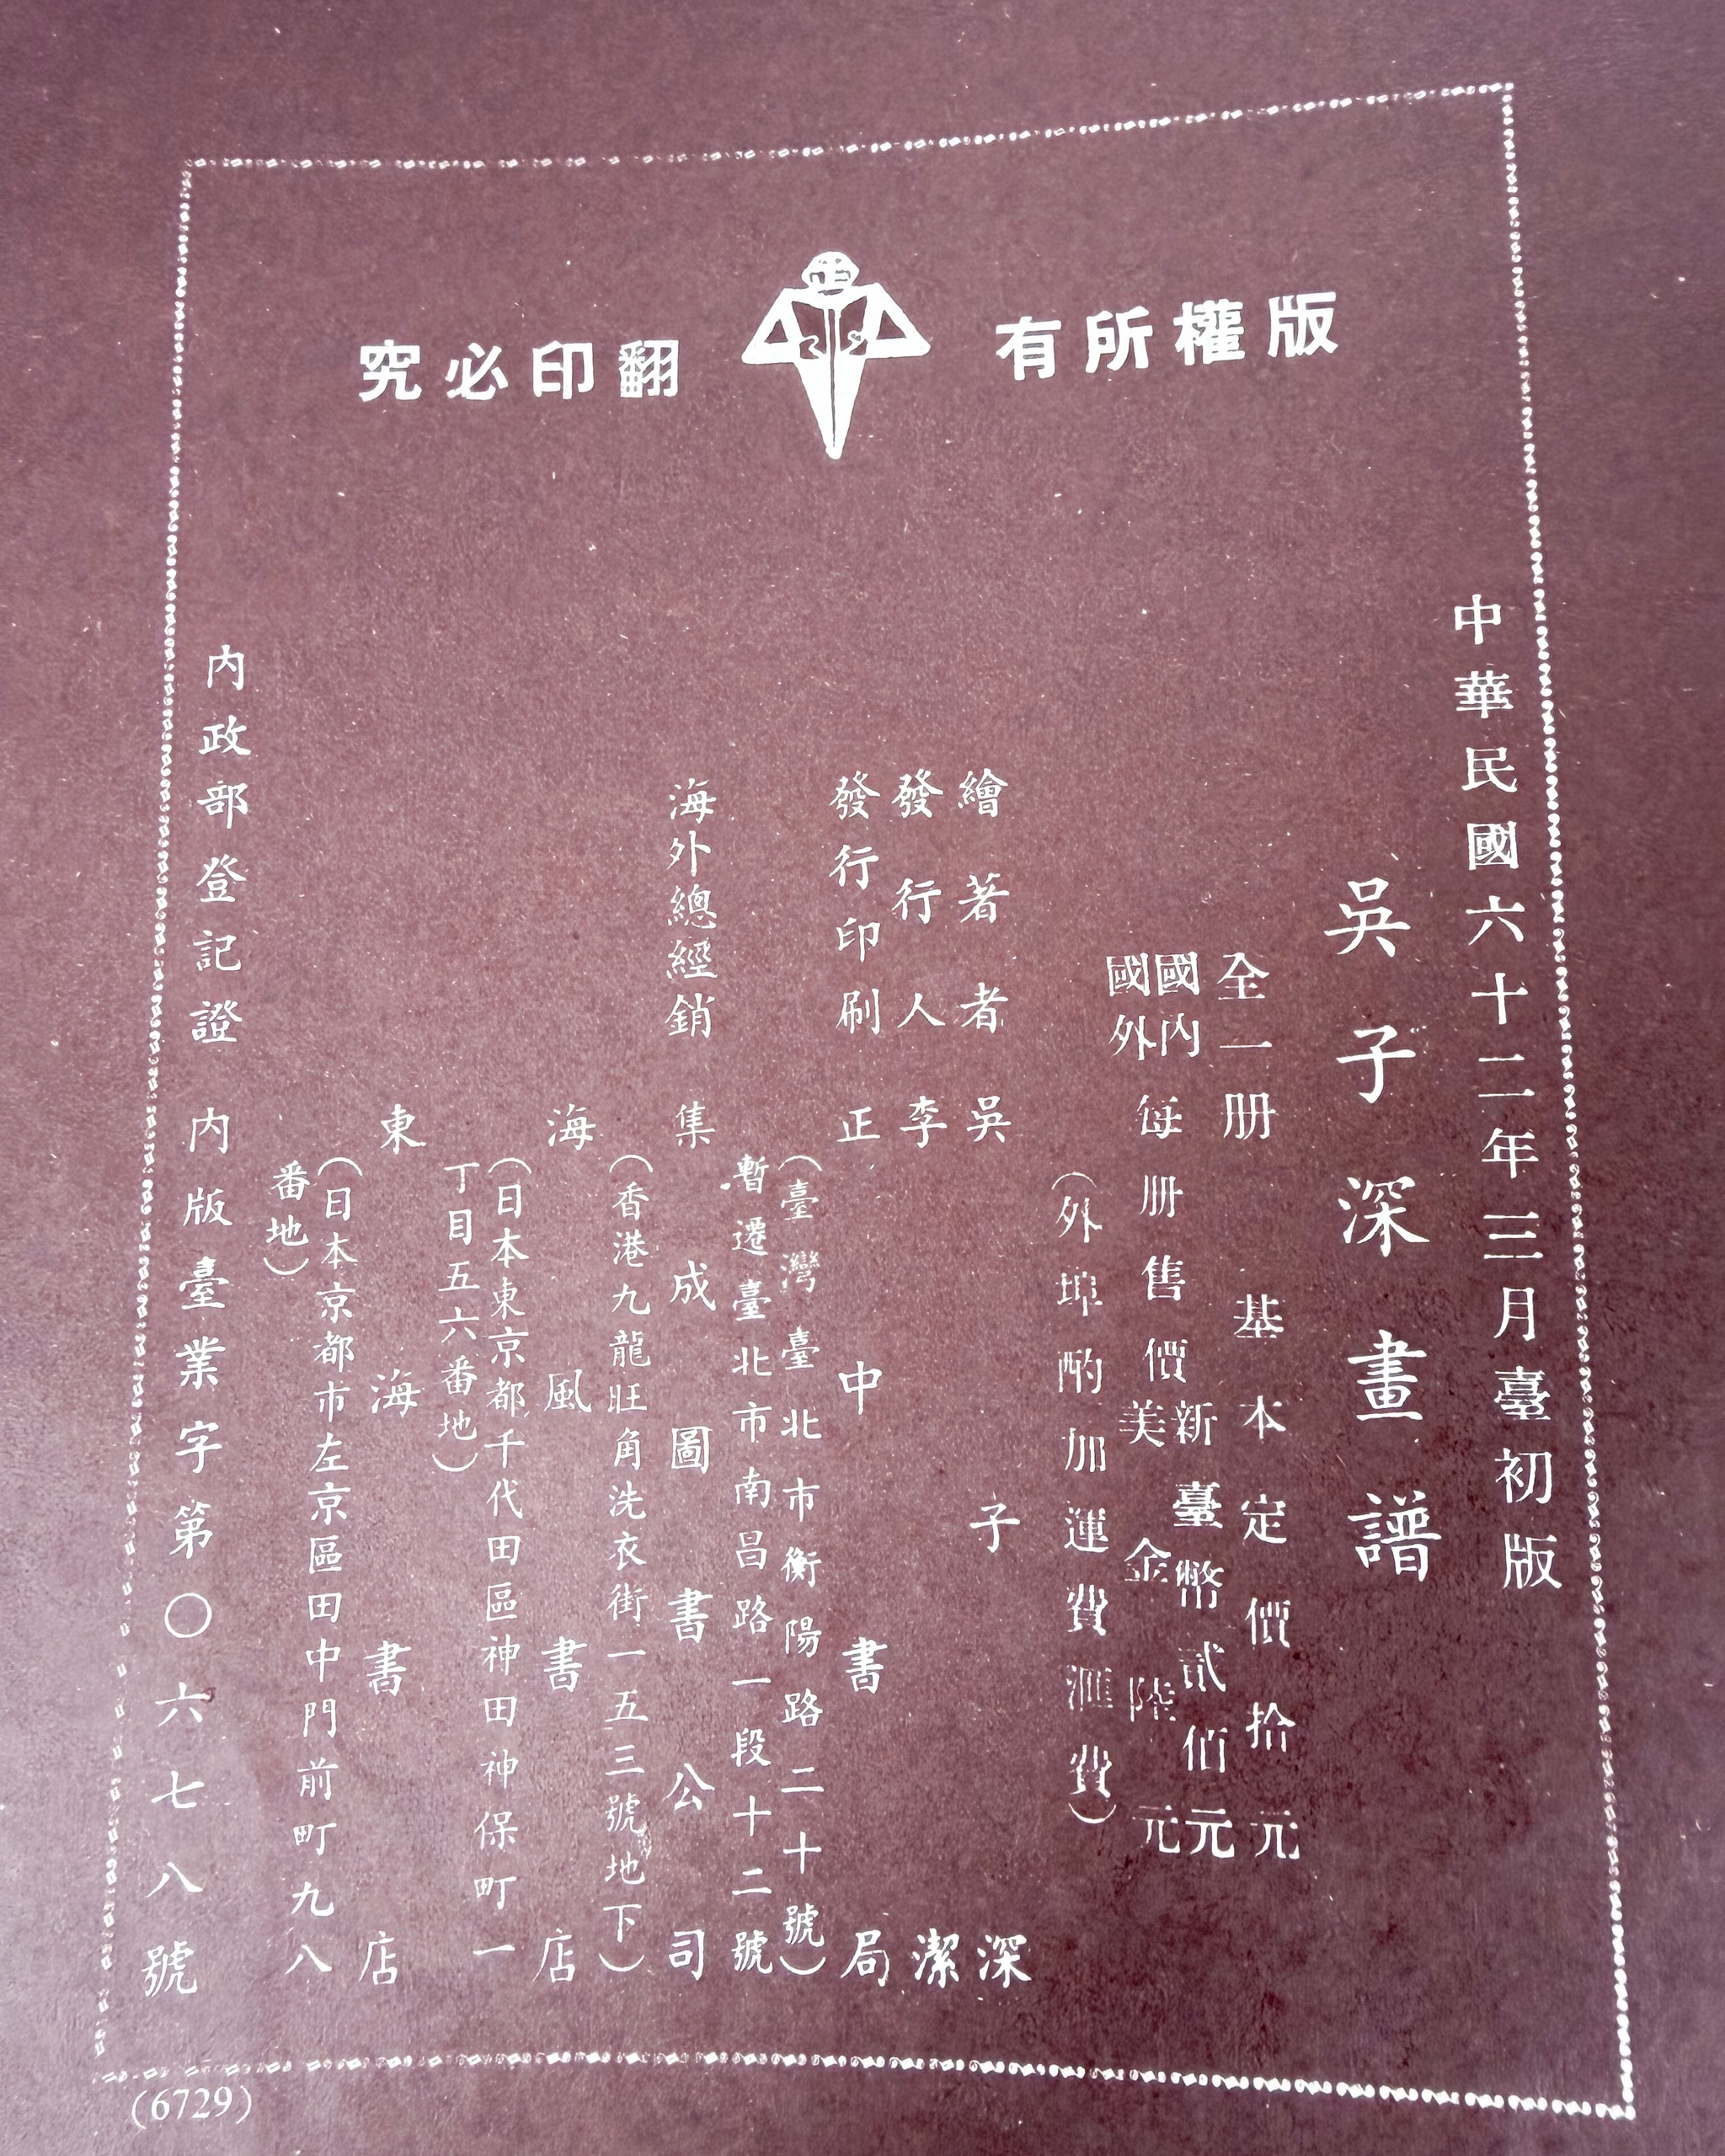 版權所有
翻印必究
正
中華民國六十二年三月臺初版
吳子深畫譜
全一册 基本定價拾元
國內
國外
每册售價
新臺幣貳佰元
美金陸元
(外埠酌加運費滙費)
繪著者 吳子深
發行人 李潔
發行印刷 正中書局
(臺灣臺北市衡陽路二十號)
暫遷臺北市南昌路一段十二號
海外總經銷 集成圖書公司
(香港九龍旺角洗衣街一五三號地下)
海風書店
(日本東京都千代田區神田神保町一
丁目五六番地)
東海書店
(日本京都市左京區田中門前町九八
番地)
內政部登記證 內版臺業字第〇六七八號
(6729)